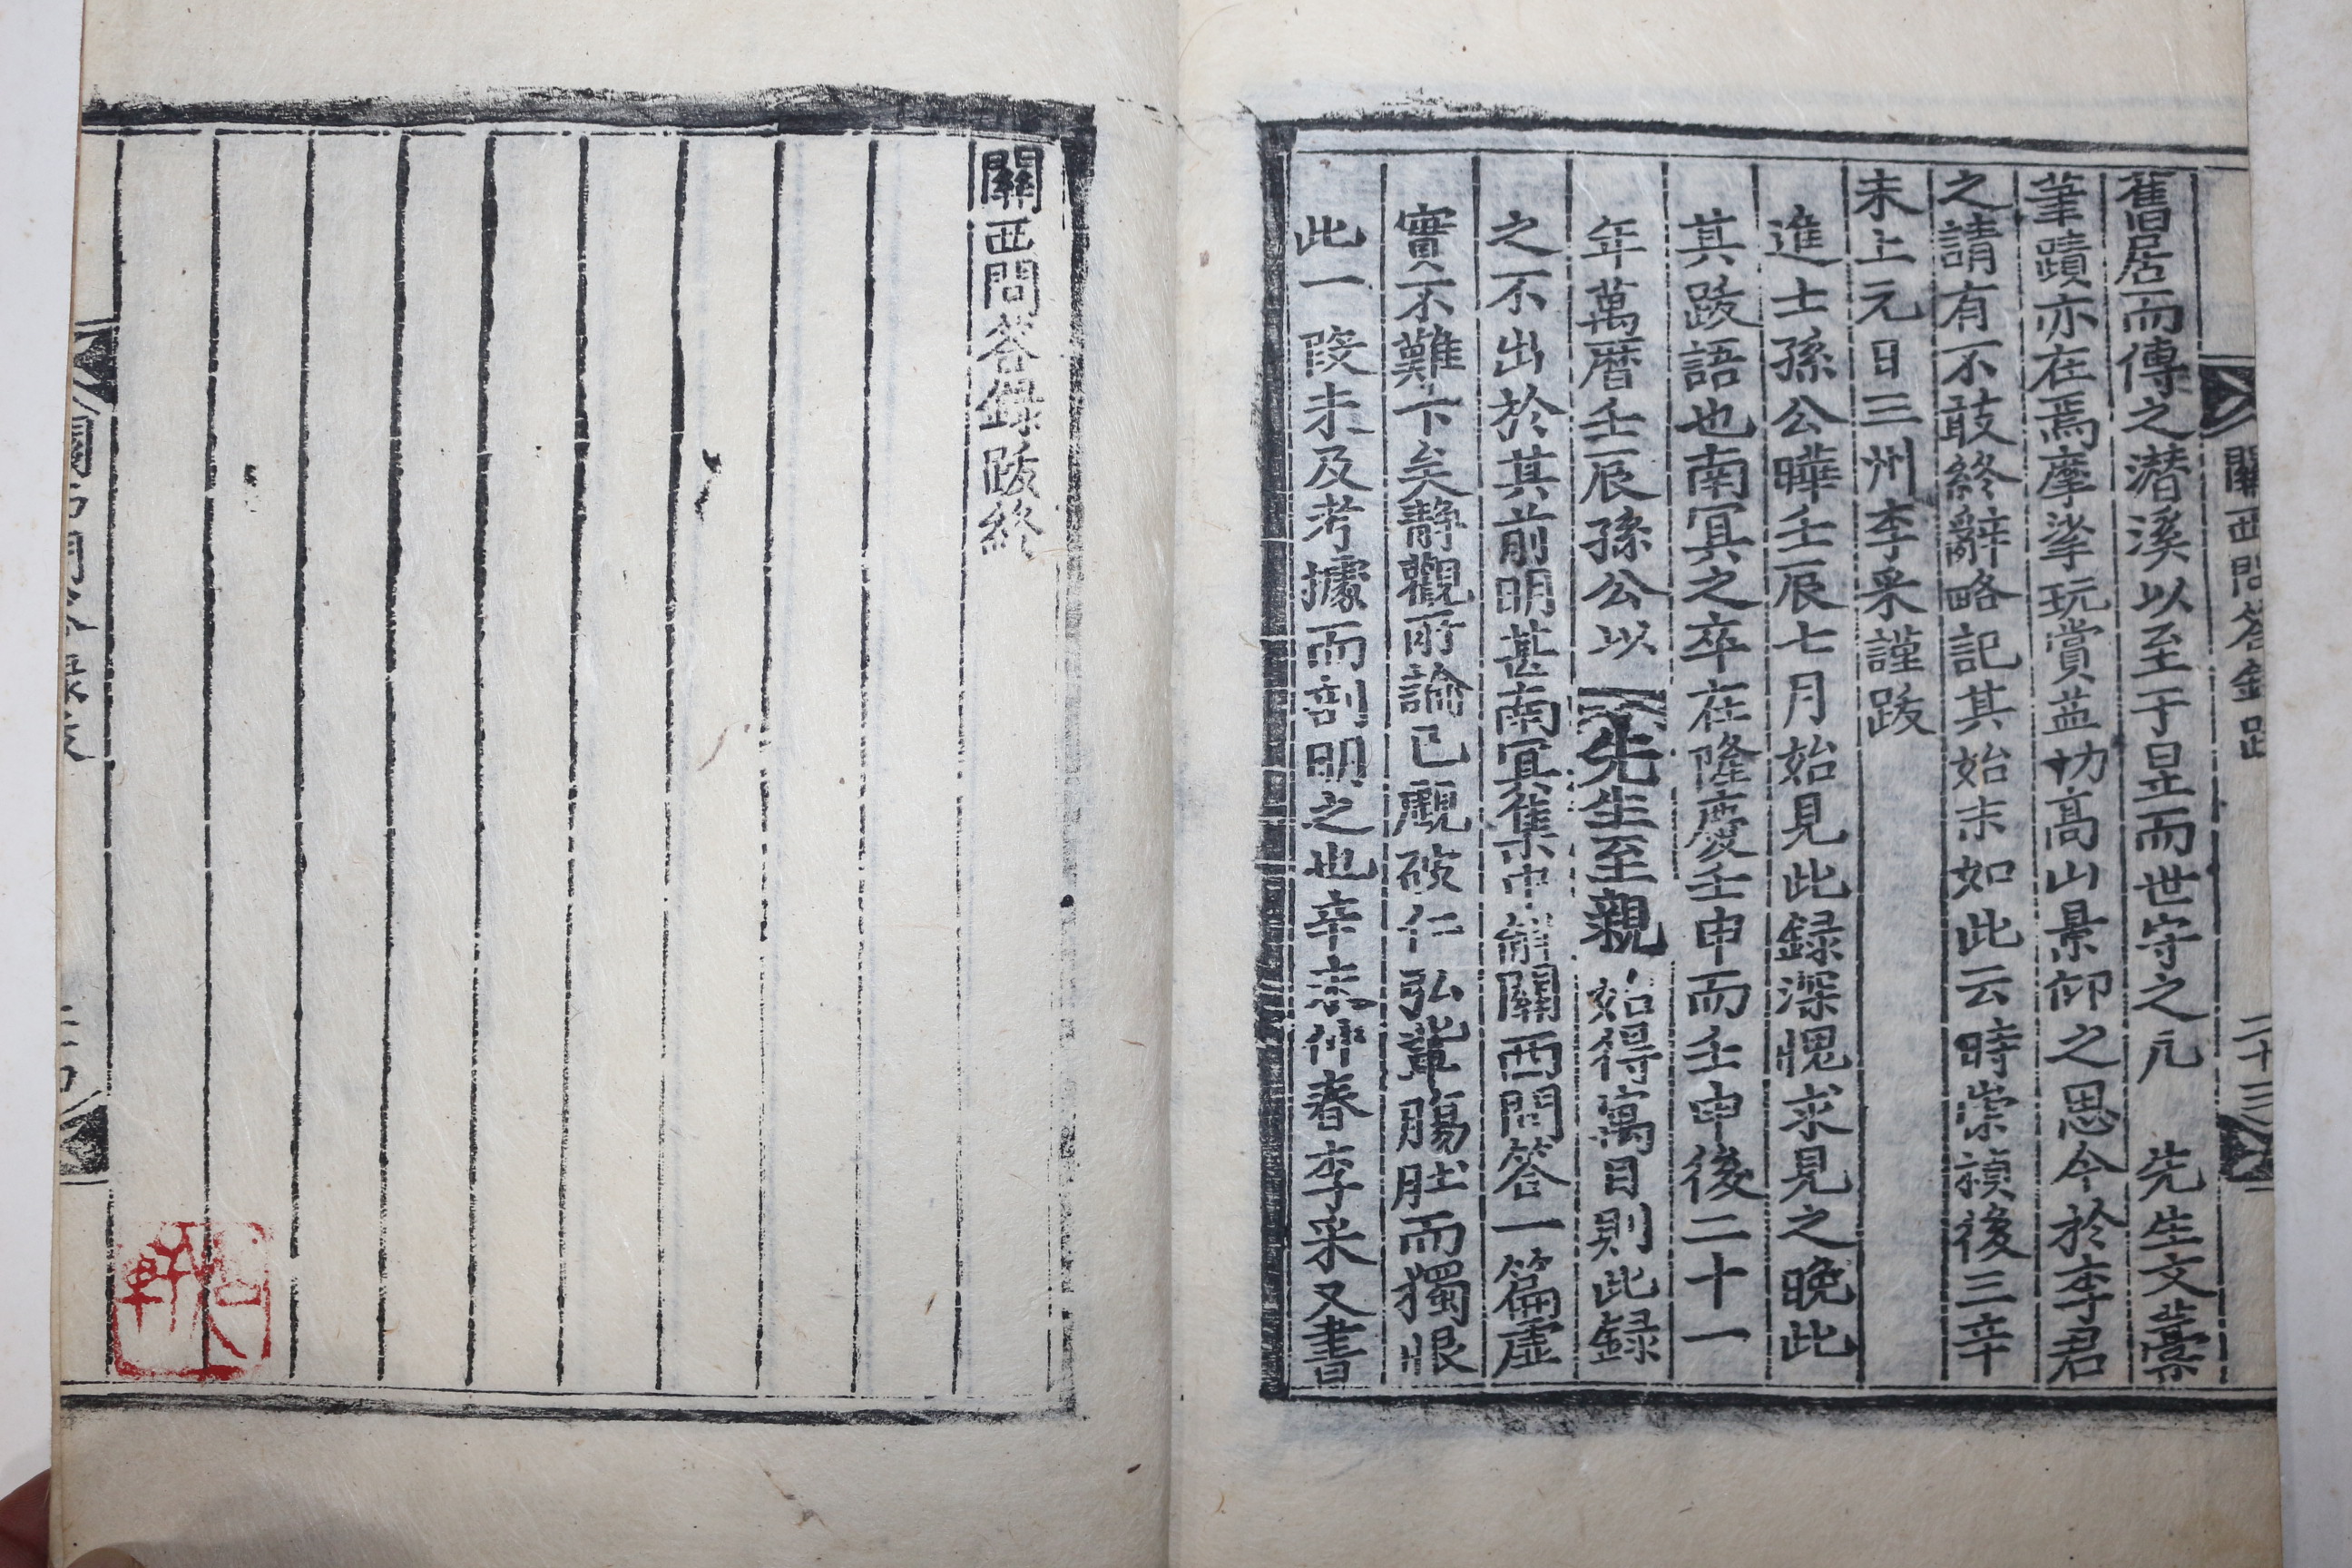 關西問答錄跋
二十三
舊居而傳之潜溪以至于是而世守之凡 先生文藁
筆蹟亦在焉摩挲玩賞益切高山景仰之思今於李君
之請有不敢終辭略記其始末如此云時崇禎後三辛
未上元日三州李采謹跋
進士孫公曄壬辰七月始見此録深愧求見之晚此
其跋語也南冥之卒在隆慶壬申而壬申後二十一
年萬曆壬辰孫公以 先生至親始得寓目則此録
之不出於其前明甚南冥集中 關西問答一篇虛
實不難卞矣静觀所論已覷破仁弘輩膓肚而獨恨
此一段未及考據而剖明之也辛未仲春李采又書
關西問答録跋終